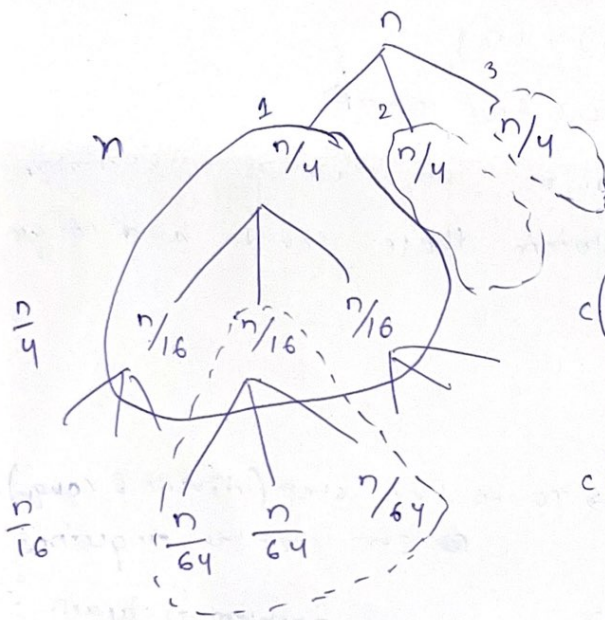 n
1 2 3
n n/4 n/4 n/4
n/4 n/16 n/16 n/16 c(
n/16 n/64 n/64 n/64 c